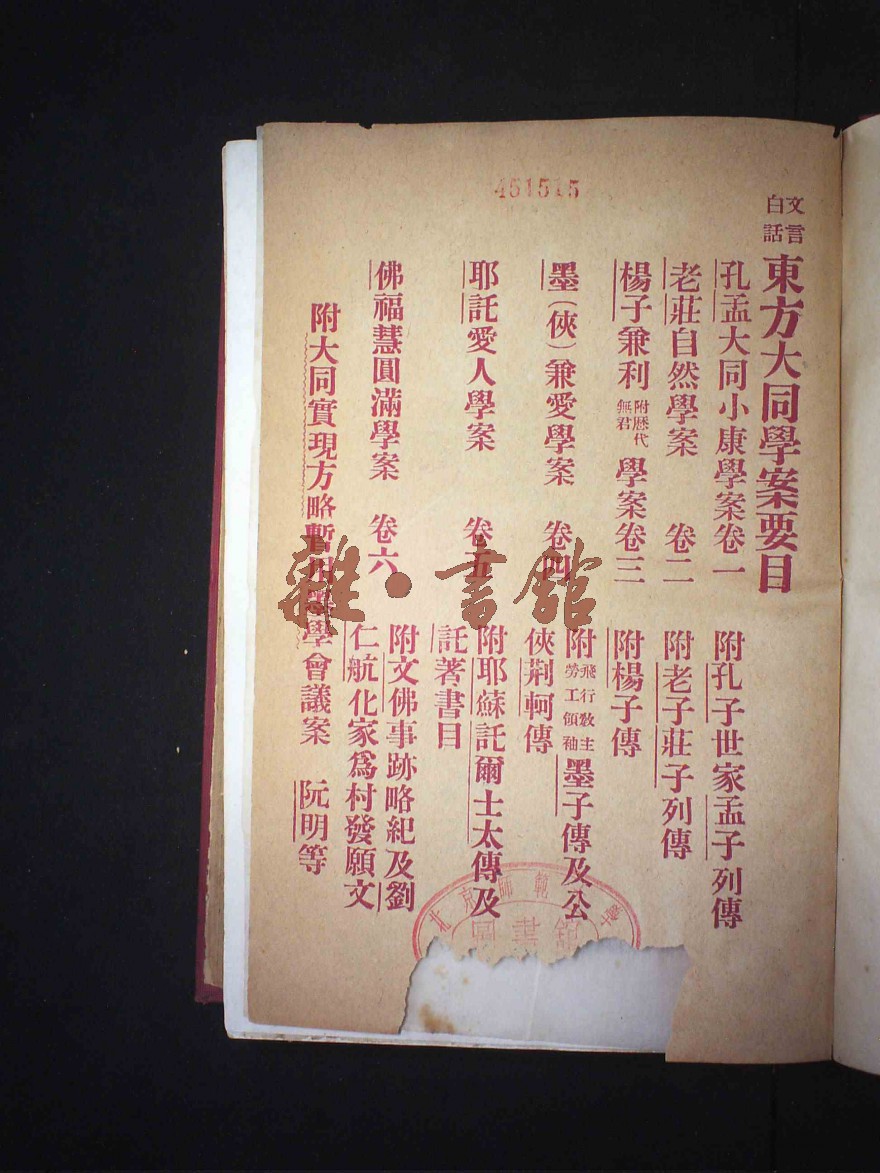 451515
文言
白話
東方大同學案要目
孔孟大同小康學案卷一
附孔子世家孟子列傳
老莊自然學案 卷二
附老子莊子列傳
楊子兼利
附歷代
無君
學案卷三
附楊子傳
墨(俠)兼愛學案 卷四
附
飛行教主
勞工領袖
墨子傳及公
俠荆軻傳
耶託愛人學案 卷五
附耶穌託爾士太傳及
託著書目
佛福慧圓滿學案 卷六
附文佛事跡略紀及劉
仁航化家為村發願文
附大同實現方略暫
學會議案 阮明等
雜·書館
北京師範
學
圖書館